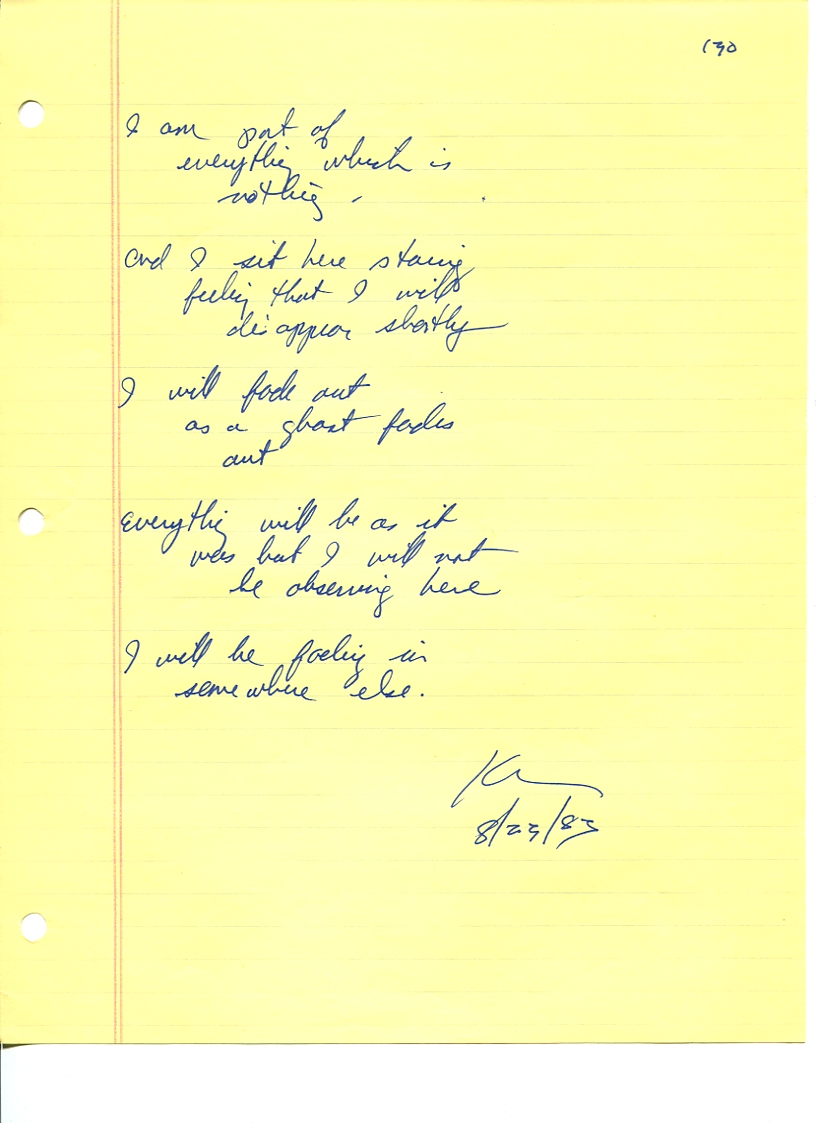 130
I am part of
everything which is
nothing.
and I sit here staring
feeling that I will
disappear shortly
I will fade out
as a ghost fades
out
everything will be as it
was but I will not
be observing here
I will be fading in
somewhere else.
8/23/83